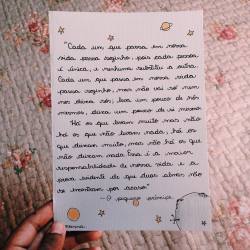 "Cada um que passa em nossa
vida passa sozinho, pois cada pessoa
é única, e nenhuma substitui a outra.
Cada um que passa em nossa vida
passa sozinho, mas não vai só nem
nos deixa sós; leva um pouco de nós
mesmos, deixa um pouco de si mesmo.
Há os que levam muito, mas não
há os que não levam nada; há os
que deixam muito, mas não há os que
não deixam nada. Essa é a maior
responsabilidade de nossa vida e a
prova evidente de que duas almas não
se encontram por acaso."
- O pequeno príncipe